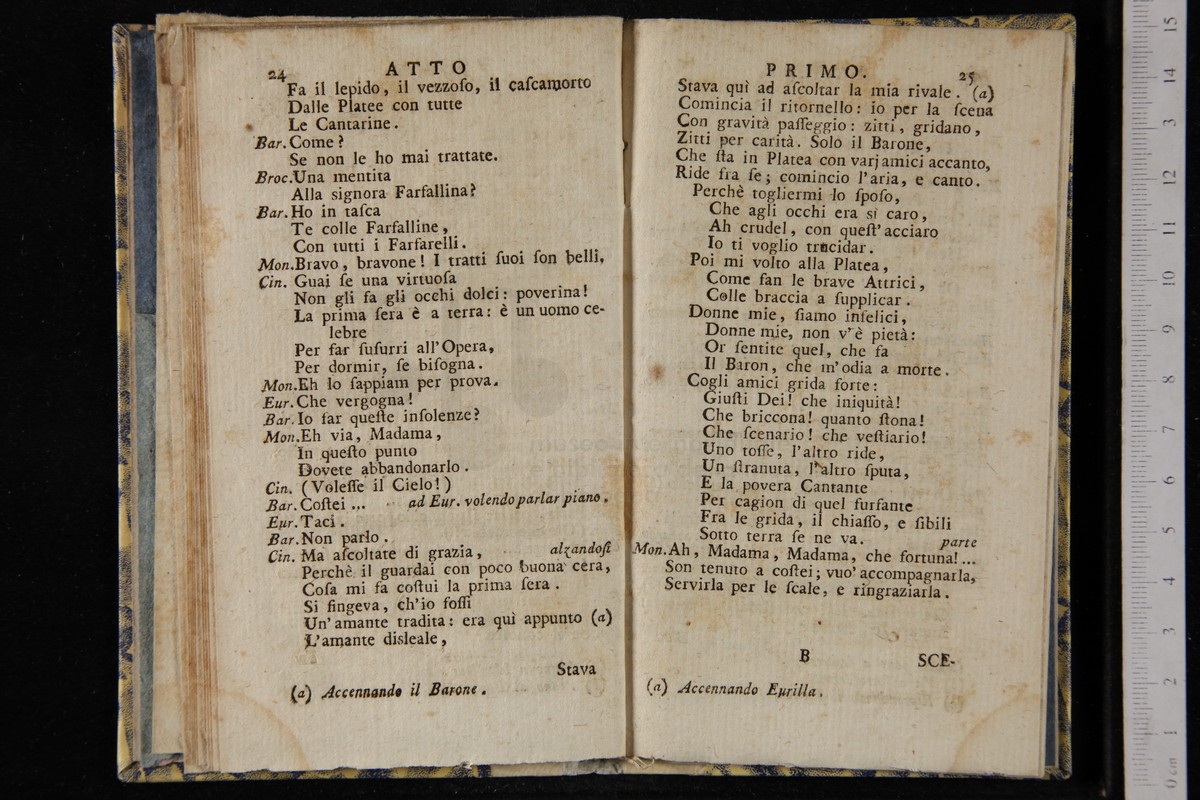 24 ATTO
Fa il lepido, il vezzoſo, il caſcamorto
Dalle Platee con tutte
Le Cantarine.
Bar. Come?
Se non le ho mai trattate.
Broc. Una mentita
Alla signora Farfallina?
Bar. Ho in taſca
Te colle Farfalline,
Con tutti i Farfarelli.
Mon. Bravo, bravone! I tratti ſuoi ſon belli,
Cin. Guai ſe una virtuoſa
Non gli fa gli occhi dolci: poverina!
La prima ſera è a terra: è un uomo ce-
lebre
Per far ſuſurri all'Opera,
Per dormir, ſe biſogna.
Mon. Eh lo ſappiam per prova.
Eur. Che vergogna!
Bar. Io far queſte inſolenze?
Mon. Eh via, Madama,
In queſto punto
Dovete abbandonarlo.
Cin. (Voleſſe il Cielo!)
Bar. Coſtei ... ad Eur. volendo parlar piano.
Eur. Taci.
Bar. Non parlo.
Cin. Ma aſcoltate di grazia, alzandoſi
Perchè il guardai con poco buona cera,
Coſa mi fa coſtui la prima ſera.
Si fingeva, ch'io foſſi
Un' amante tradita: era quì appunto (a)
L'amante disleale,
Stava
(a) Accennando il Barone.
PRIMO. 25
Stava quì ad aſcoltar la mia rivale. (a)
Comincia il ritornello: io per la ſcena
Con gravità paſſeggio: zitti, gridano,
Zitti per carità. Solo il Barone,
Che ſta in Platea con varj amici accanto,
Ride fra ſe; comincio l'aria, e canto.
Perchè togliermi lo ſpoſo,
Che agli occhi era sì caro,
Ah crudel, con queſt' acciaro
Io ti voglio trucidar.
Poi mi volto alla Platea,
Come fan le brave Attrici,
Colle braccia a ſupplicar.
Donne mie, ſiamo infelici,
Donne mie, non v'è pietà:
Or ſentite quel, che fa
Il Baron, che m'odia a morte.
Cogli amici grida forte:
Giuſti Dei! che iniquità!
Che briccona! quanto ſtona!
Che ſcenario! che veſtiario!
Uno toſſe, l'altro ride,
Un ſtranuta, l'altro ſputa,
E la povera Cantante
Per cagion di quel furfante
Fra le grida, il chiaſſo, e ſibili
Sotto terra ſe ne va. parte
Mon. Ah, Madama, Madama, che fortuna!...
Son tenuto a coſtei; vuo' accompagnarla,
Servirla per le ſcale, e ringraziarla.
B SCE-
(a) Accennando Eurilla.
0 cm 1 2 3 4 5 6 7 8 9 10 11 12 3 14 15